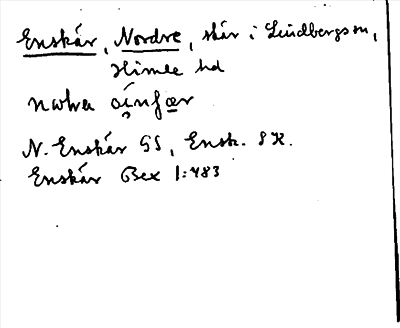 Enskär, Nordre, skär i Lindbergs sn,
Himle hd
nωhra ọínfær
N. Enskär GS, Ensk. SK.
Enskär Bex 1:483